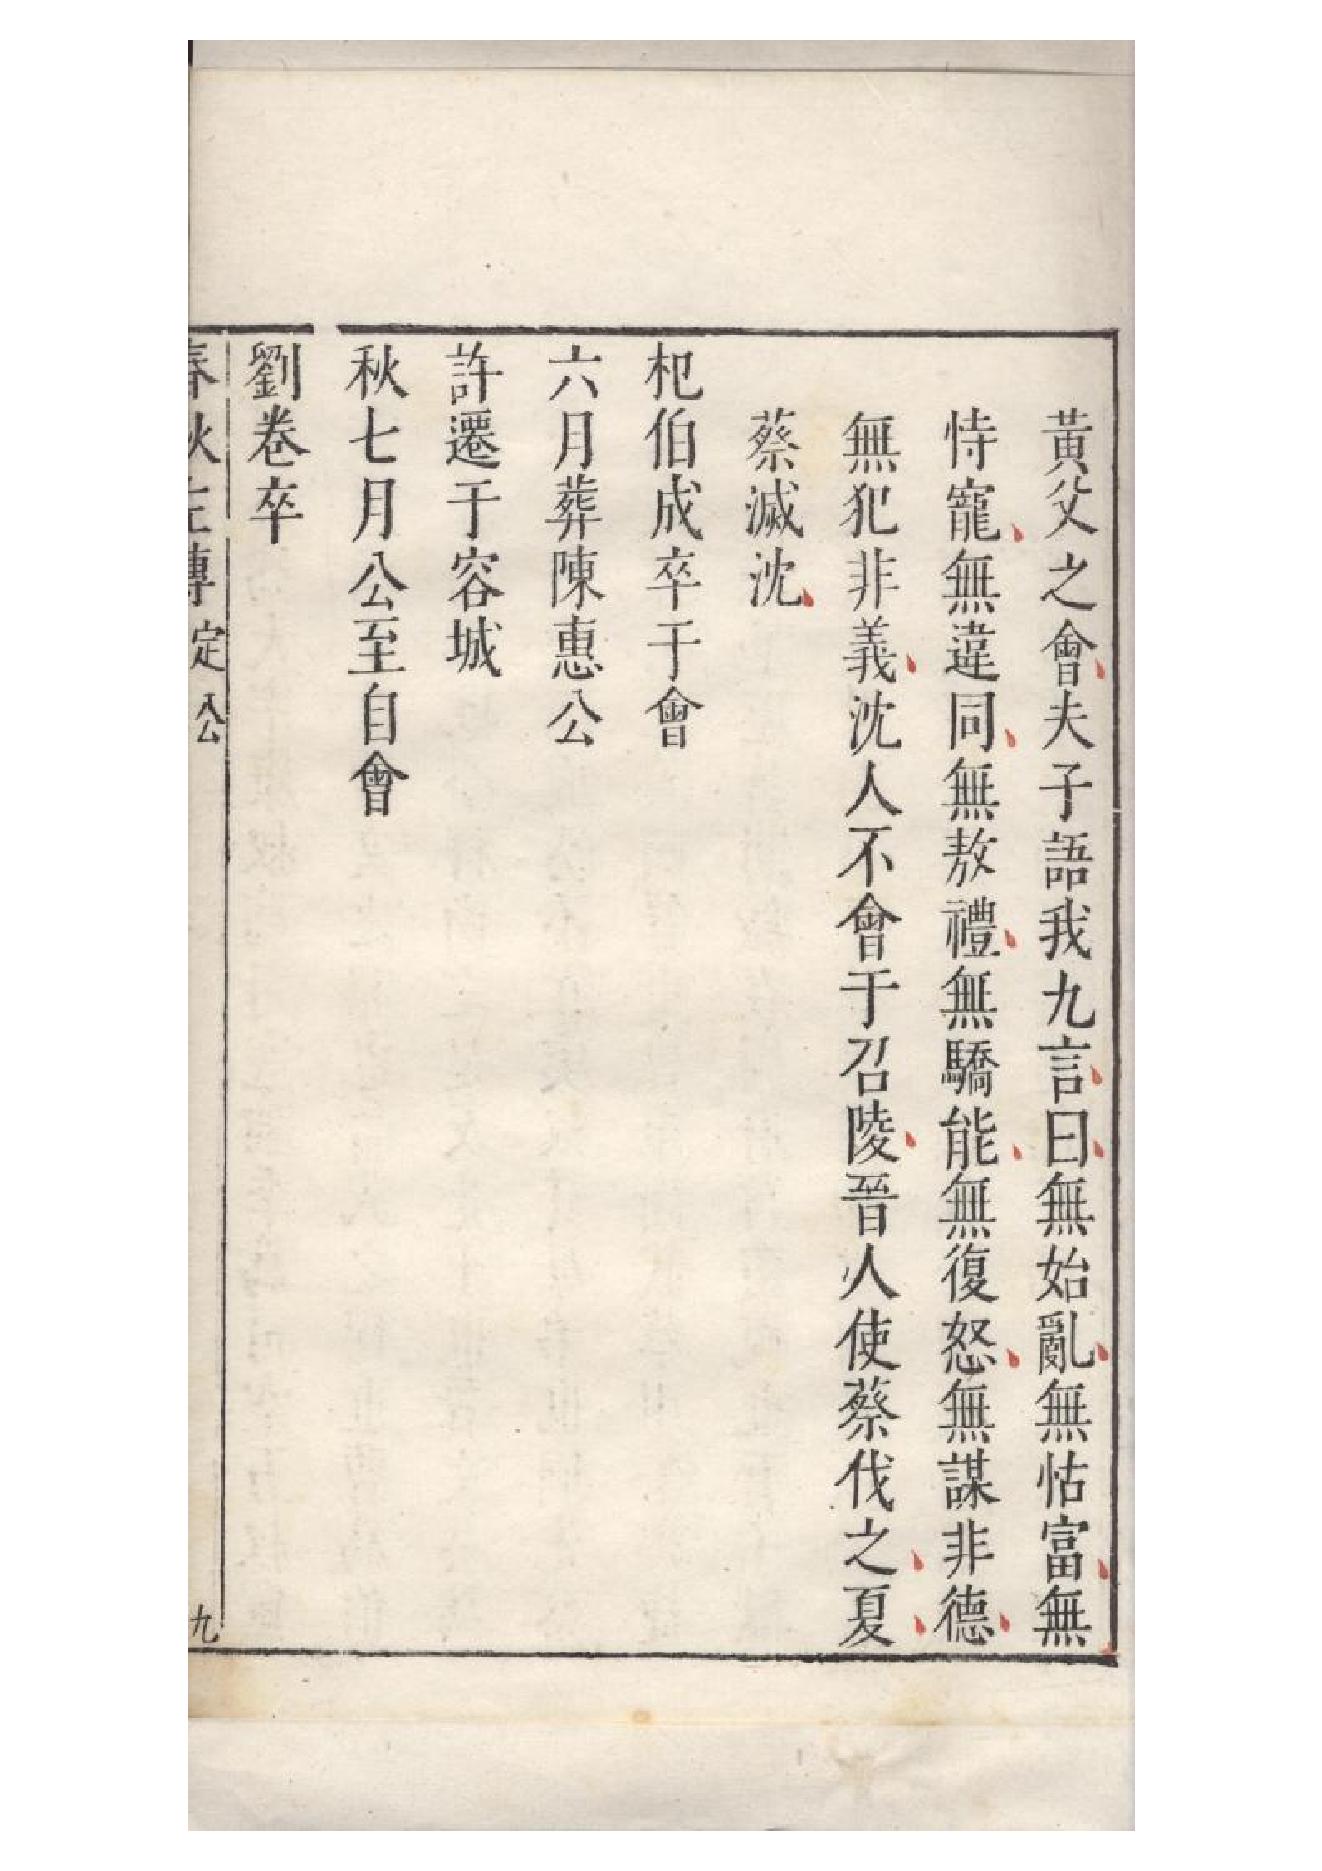 黃父之會夫子語我九言曰無始亂無怙富無
恃寵無違同無敖禮無驕能無復怒無謀非德
無犯非義沈人不會于召陵晉人使蔡伐之夏
蔡滅沈
杞伯成卒于會
六月葬陳惠公
許遷于容城
秋七月公至自會
劉卷卒
春秋左傳 定公 九